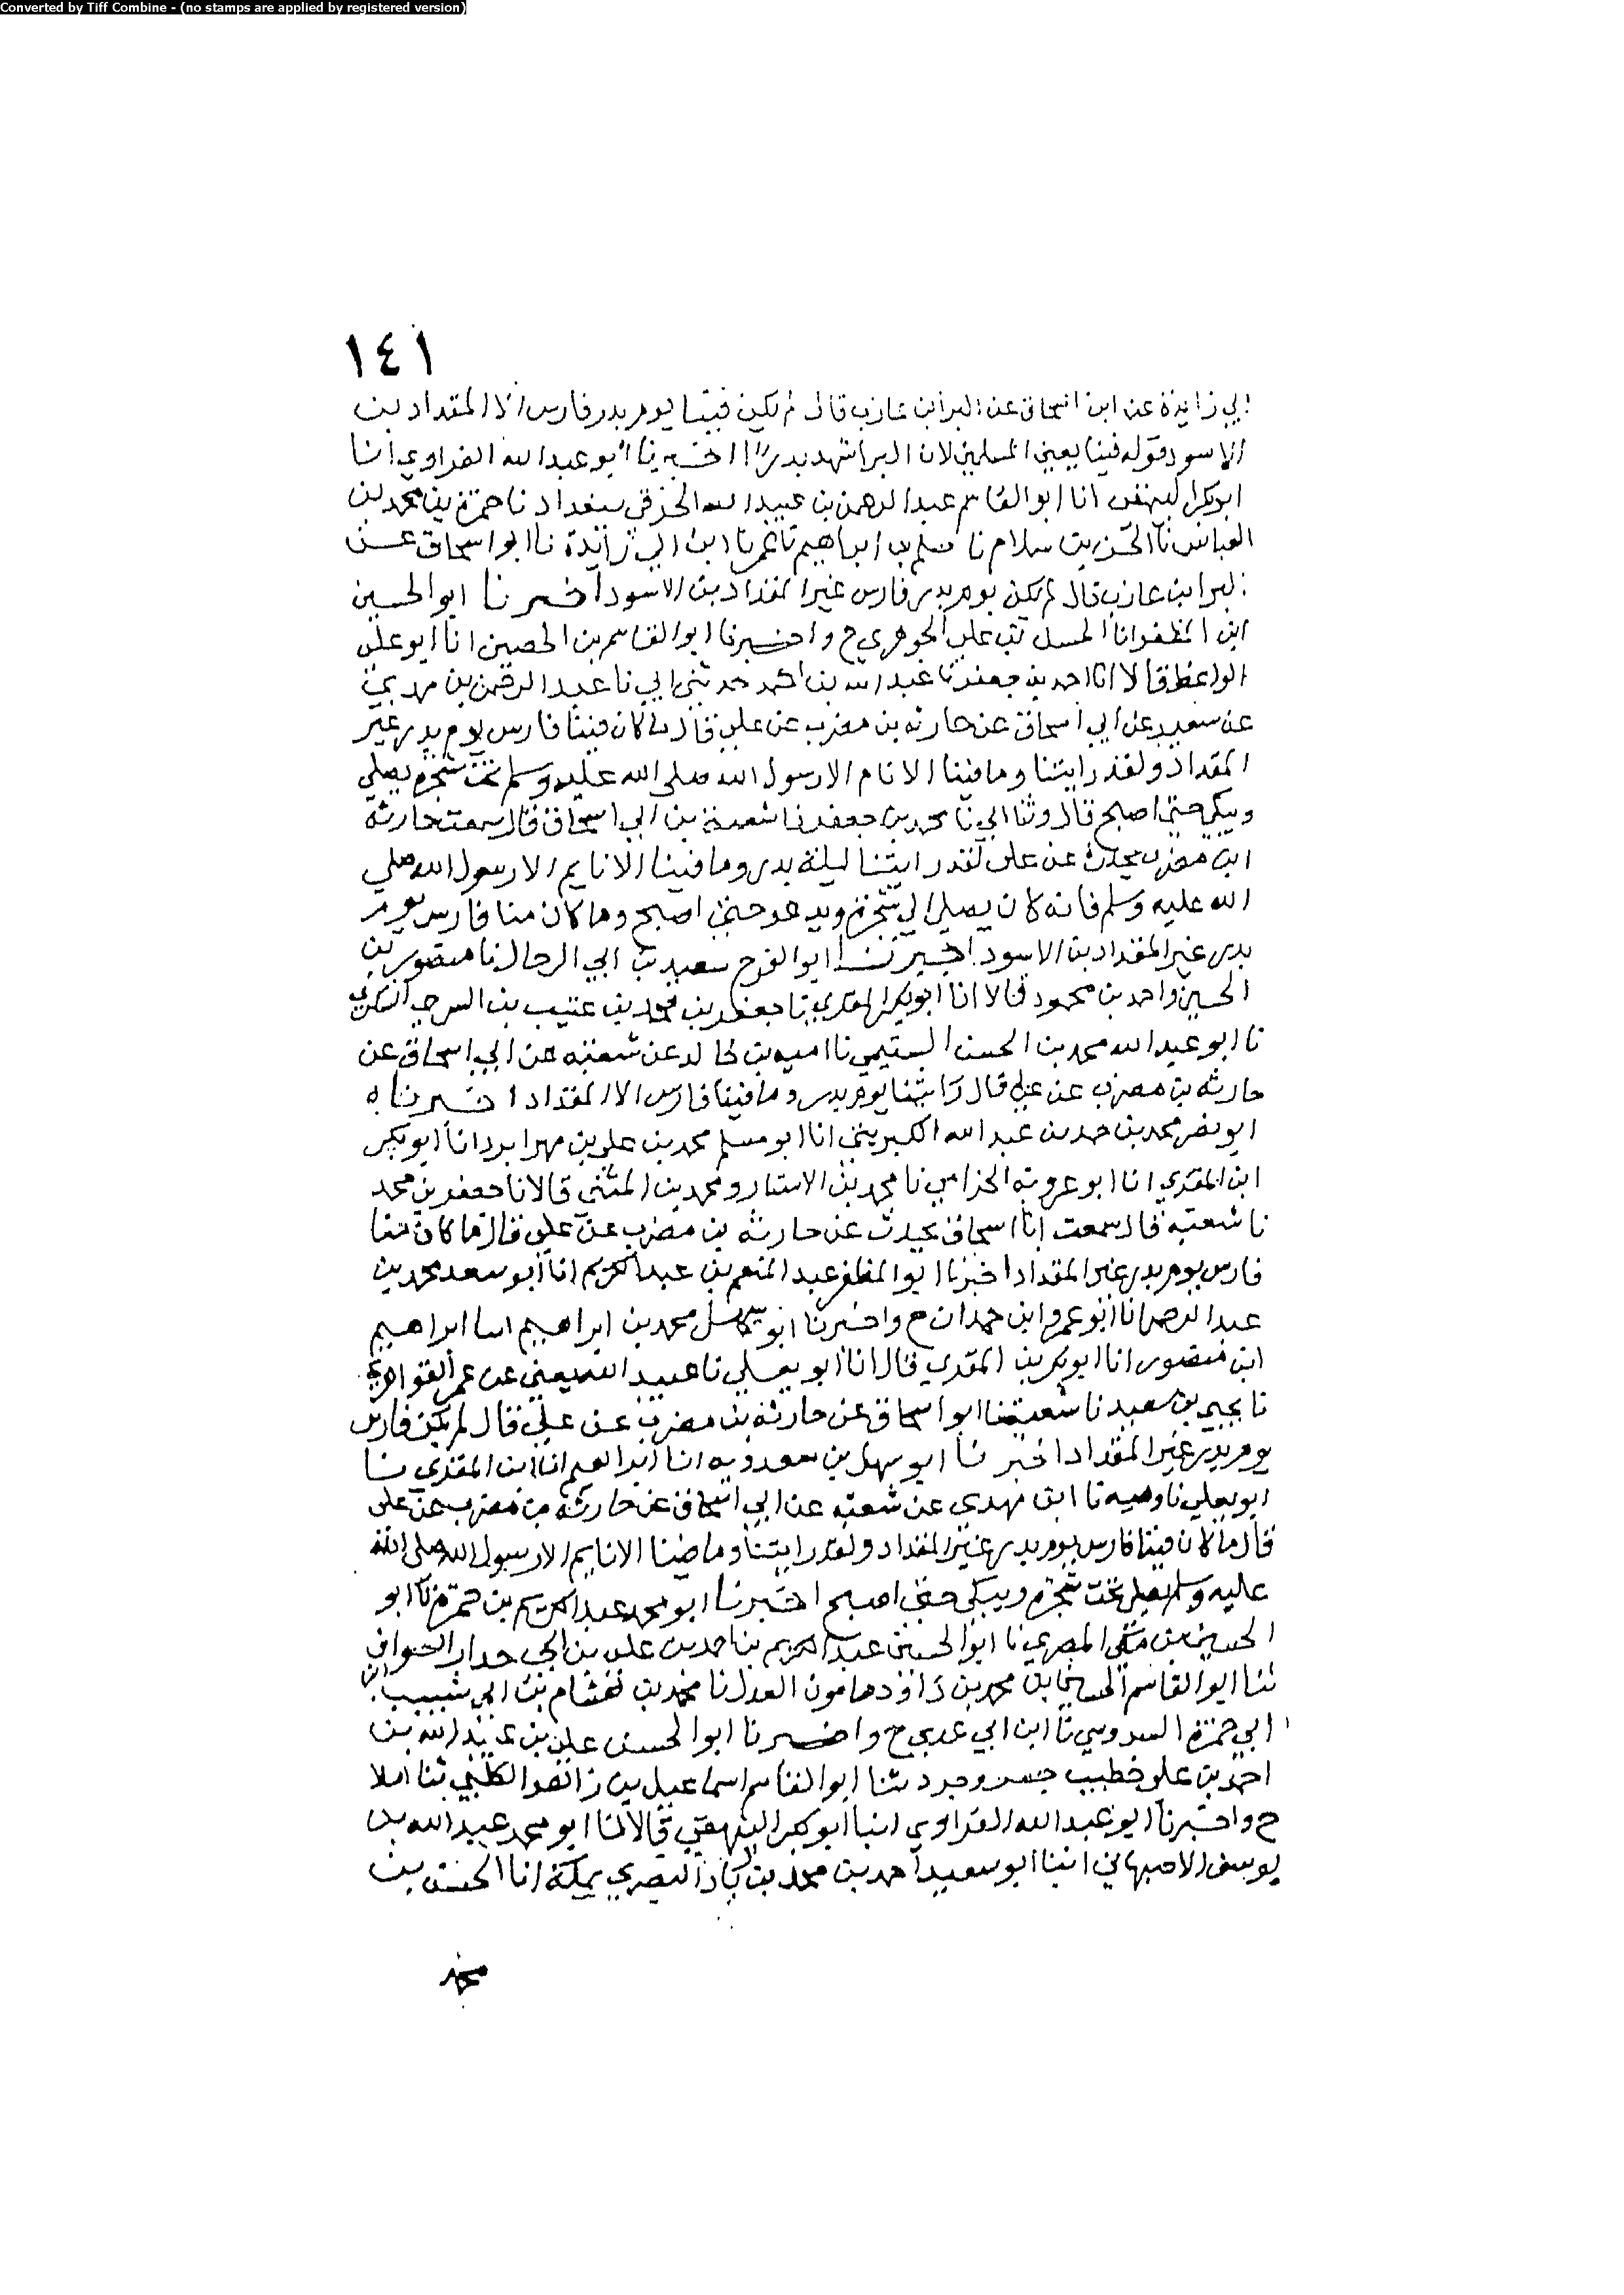 Converted by Tiff Combine - (no stamps are applied by registered version)
١٤١
ابي زايدة عن ابن اسحاق عن البرا بن عازب قال لم يكن فينا يوم بدر فارس الا المقداد بن
الاسود قوله فينا يعني المسلمين لان البرا شهد بدرا اخبرنا ابو عبد الله الفراوي انا
ابو بكر البيهقي انا ابو القاسم عبد الرحمن بن عبيد الله الحرفي ببغداد نا حمزة بن محمد بن
العباس نا الحسن بن سلام نا مسلم بن ابراهيم نا عمر نا ابن ابي زايدة نا ابو اسحاق عن
البرا بن عازب قال لم يكن يوم بدر فارس غير المقداد بن الاسود اخبرنا ابو الحسين
ابن المظفر انا الحسن بن علي الجوهري ح واخبرنا ابو القاسم بن الحصين انا ابو علي
الواعظ قالا انا احمد بن جعفر نا عبد الله بن احمد حدثني ابي نا عبد الرحمن بن مهدي
عن سعيد عن ابي اسحاق عن حارثه بن مضرب عن علي قال ما كان فينا فارس يوم بدر غير
المقداد ولقد رايتنا وما فينا الا نايم الا رسول الله صلى الله عليه وسلم تحت شجرة يصلي
ويبكي حتى اصبح قال وثنا ابي نا محمد بن جعفر نا شعبة بن ابي اسحاق قال سمعت حارثه
ابن مضرب يحدث عن علي لقد رايتنا ليلة بدر وما فينا الا نايم الا رسول الله صلي
الله عليه وسلم فانه كان يصلي الي شجرة ويدعو حتى اصبح وما كان منا فارس يوم
بدر غير المقداد بن الاسود اخبرنا ابو الفرج سعيد بن ابي الرجا نا منصور بن
الحسين واحمد بن محمود قالا انا ابو بكر المقري نا جعفر بن محمد بن عتيب بن السرجي السكري
نا ابو عبد الله محمد بن الحسن البستيمي نا اميه بن خالد عن شعبه عن ابي اسحاق عن
حارثه بن مضرب عن علي قال رايتنا يوم بدر وما فينا فارس الا المقداد اخبرنا ه
ابو نصر محمد بن حمد بن عبد الله الكبريتي انا ابو مسلم محمد بن علي بن مهرابرد انا ابو بكر
ابن المقري انا ابو عروبة الحرامي نا محمد بن الاستار ومحمد بن المثنى قالا نا جعفر بن محمد
نا شعبه قال سمعت ابا اسحاق يحدث عن حارثه بن مضرب عن علي قال ما كان منا
فارس يوم بدر غير المقداد اخبرنا ابو المظفر عبد المنعم بن عبد الكريم انا ابو سعد محمد بن
عبد الرحمن انا ابو عمرو ابن حمدان ح واخبرنا ابو سهل محمد بن ابراهيم انا ابراهيم
ابن منصور انا ابو بكر بن المقري قال انا ابو يعلي نا عبيد الله يعني عن عمر القواريري
نا يحيى بن سعيد نا شعبة نا ابو اسحاق عن حارثة بن مضرب عن علي قال لم يكن فارس
يوم بدر غير المقداد اخبرنا ابو سهل بن سعدويه انا ابراهيم انا ابن المقري نا
ابو يعلي نا وهيه نا ابن مهدي عن شعبه عن ابي اسحاق عن حارثه بن مضرب عن علي
قال ما كان فينا فارس يوم بدر غير المقداد ولقد رايتنا وما فينا الا نايم الا رسول الله صلى الله
عليه وسلم يصلي تحت شجرة ويبكي حتى اصبح اخبرنا ابو محمد عبد الكريم بن حمزة نا ابو
الحسين بن مكي المصري نا ابو الحسين عبد الكريم بن احمد بن علي بن ابي جدار الصواف
ثنا ابو القاسم الحسين بن محمد بن داود مامون العدل نا محمد بن هشام بن ابي شبيب ابن
ابي حمزة السدوسي نا ابن ابي عدي ح واخبرنا ابو الحسن علي بن عبيد الله بن
احمد بن علي خطيب خسروجرد ثنا ابو القاسم اسماعيل بن زاهر الكلبي ثنا املا
ح واخبرنا ابو عبد الله الفراوي انبا ابو بكر البيهقي قالا انا ابو محمد عبد الله بن
يوسف الاصبهاني انبا ابو سعيد احمد بن محمد بن زياد البصري بمكة انا الحسن بن
محمد